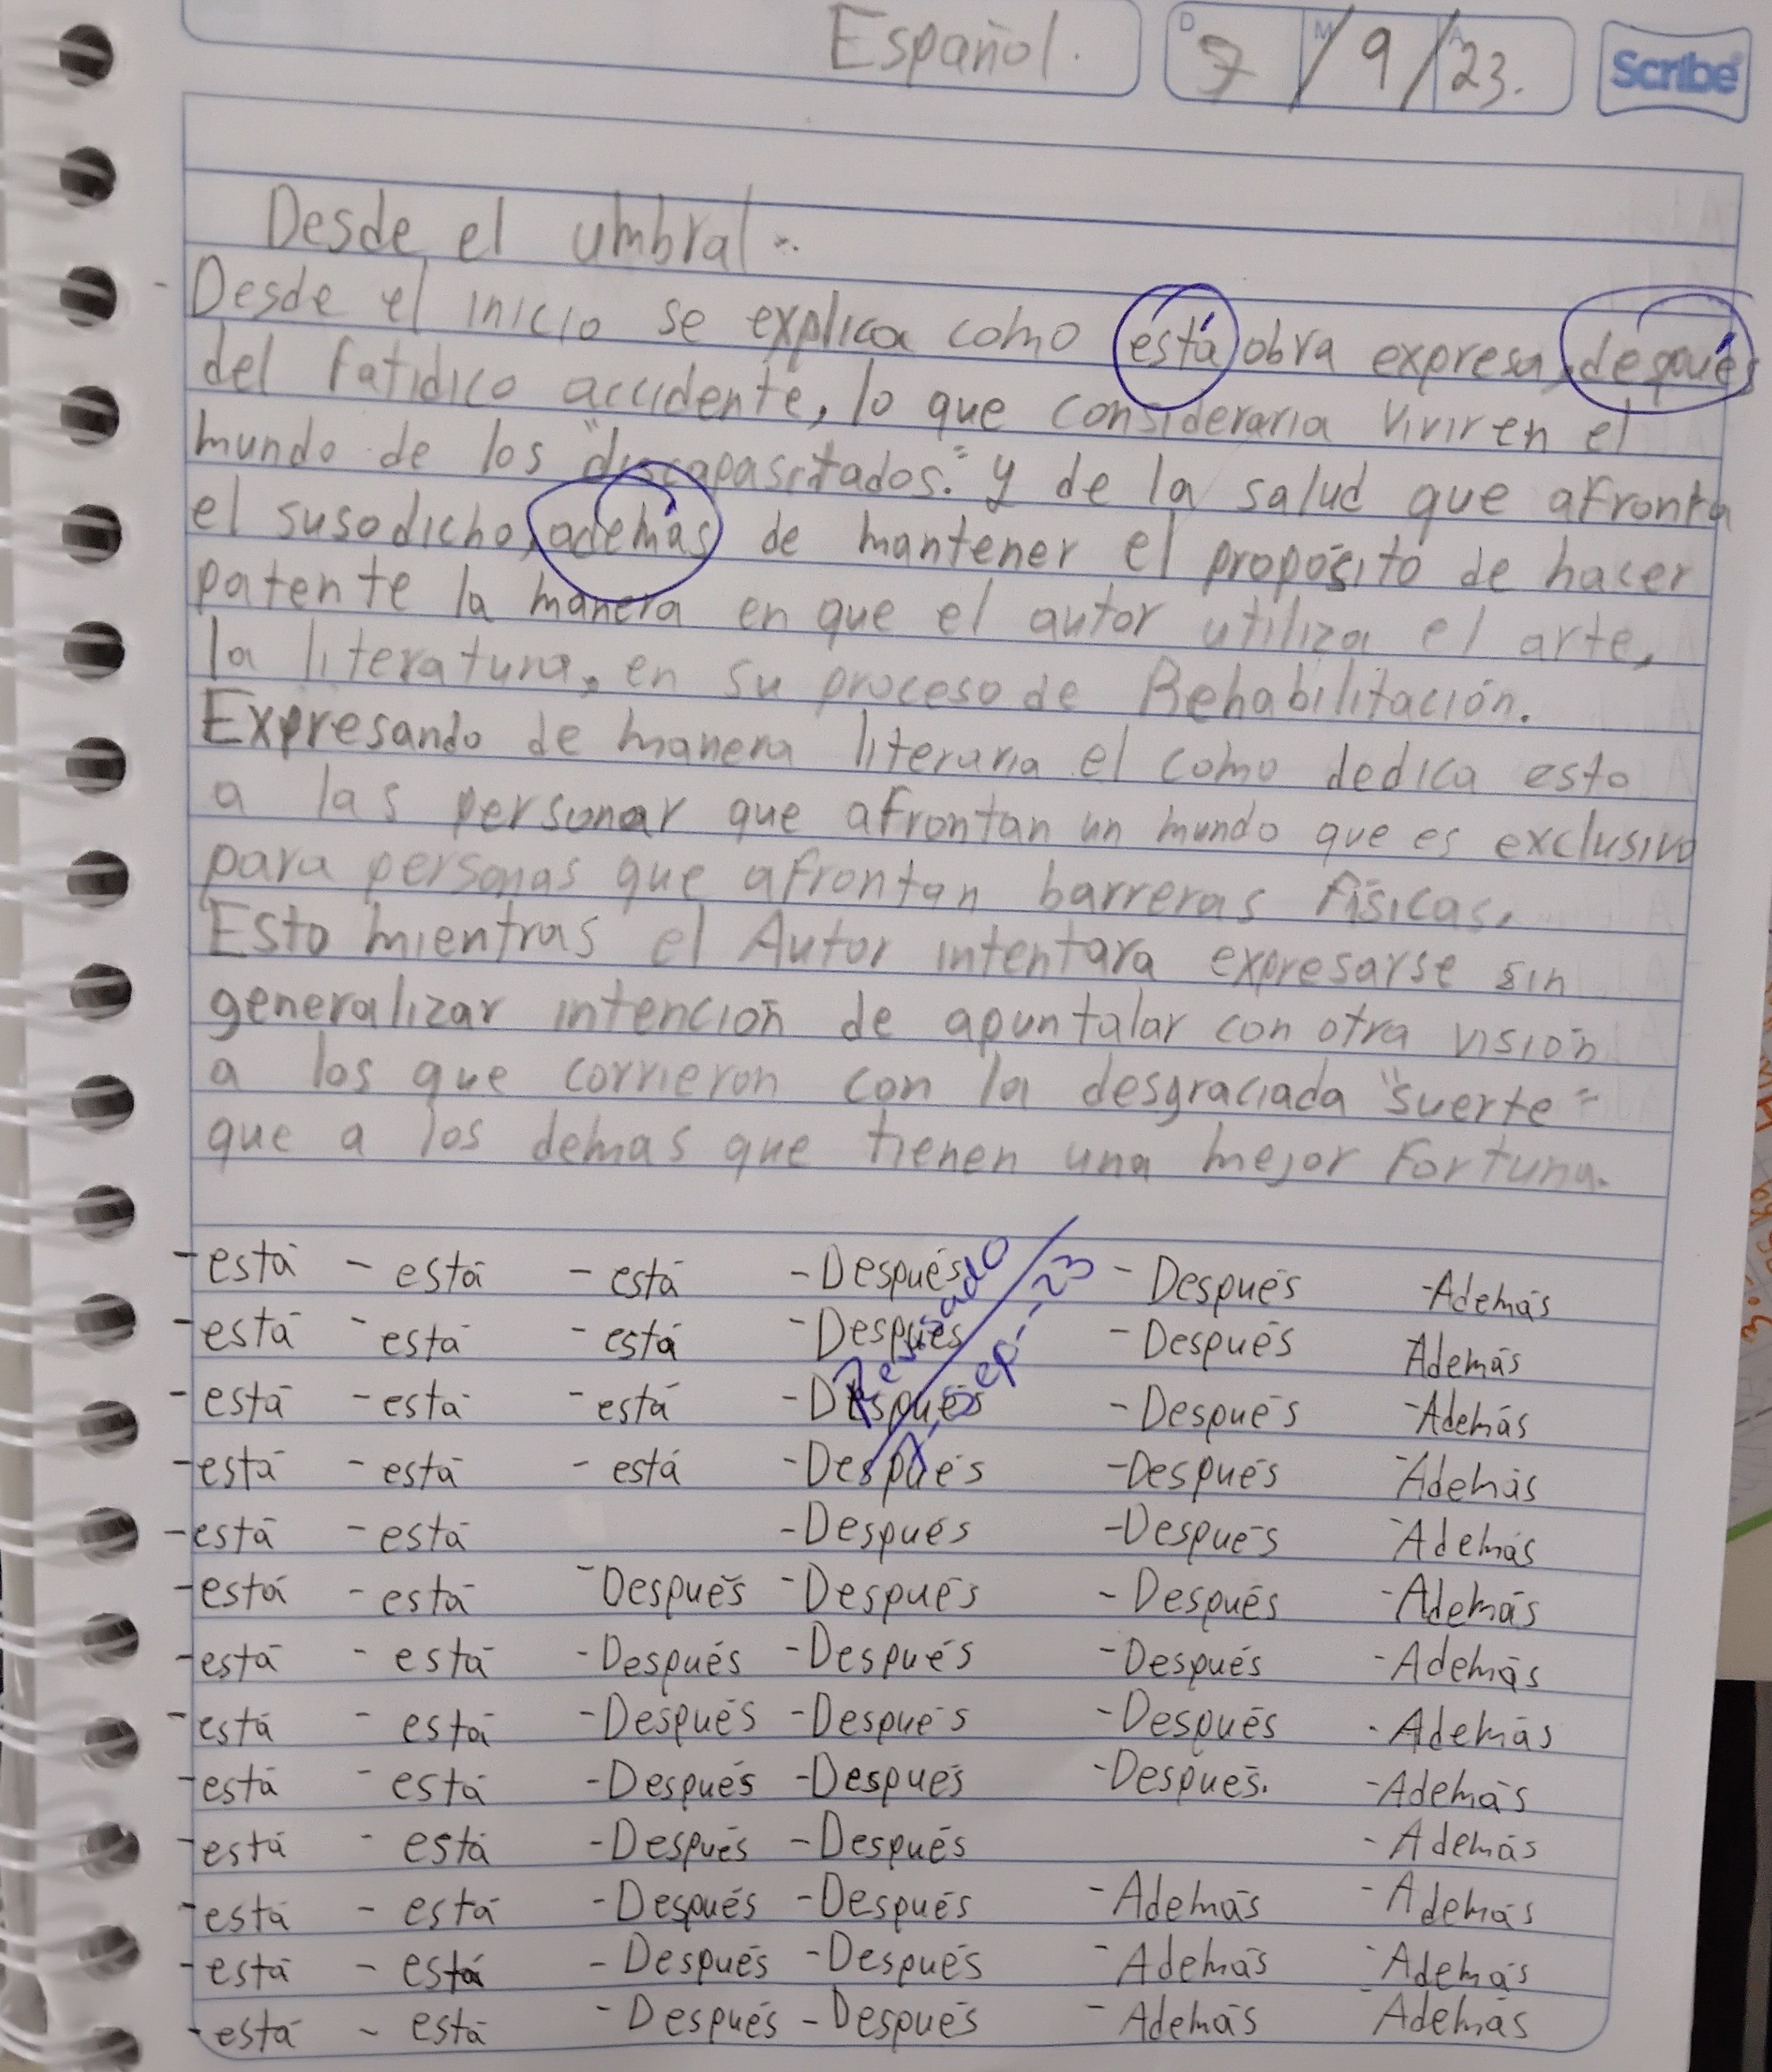 Español.
D 7 / M 9 / A 23.
Scribe
Desde el umbral..
-Desde el inicio se explica como está obra expresa, después
del Fatidico accidente, lo que consideraria vivir en el
mundo de los "discapasitados." y de la salud que aFronta
el susodicho, además de mantener el propósito de hacer
patente la manera en que el autor utiliza el arte,
la literatura, en su proceso de Rehabilitación.
Expresando de manera literaria el como dedica esto
a las personar que aFrontan un mundo que es exclusivo
para personas que aFrontan barreras Físicas.
Esto mientras el Autor intentara expresarse sin
generalizar intención de apuntalar con otra visión
a los que corrieron con la desgraciada "suerte"
que a los demas que tienen una mejor Fortuna.
-está -está -está -Después -Después -Además
-está -está -está -Después -Después Además
-está -está -está -Después -Después -Además
-está -está -está -Después -Después -Además
-está -está -Después -Después -Además
-está -está -Después -Después -Después -Además
-está -está -Después -Después -Después -Además
-está -está -Después -Después -Después -Además
-está -está -Después -Después -Después. -Además
-está -está -Después -Después -Además
-está -está -Después -Después -Además -Además
-está -está -Después -Después -Además -Además
-está -está -Después -Después -Además Además
Revisado
-Sep--23